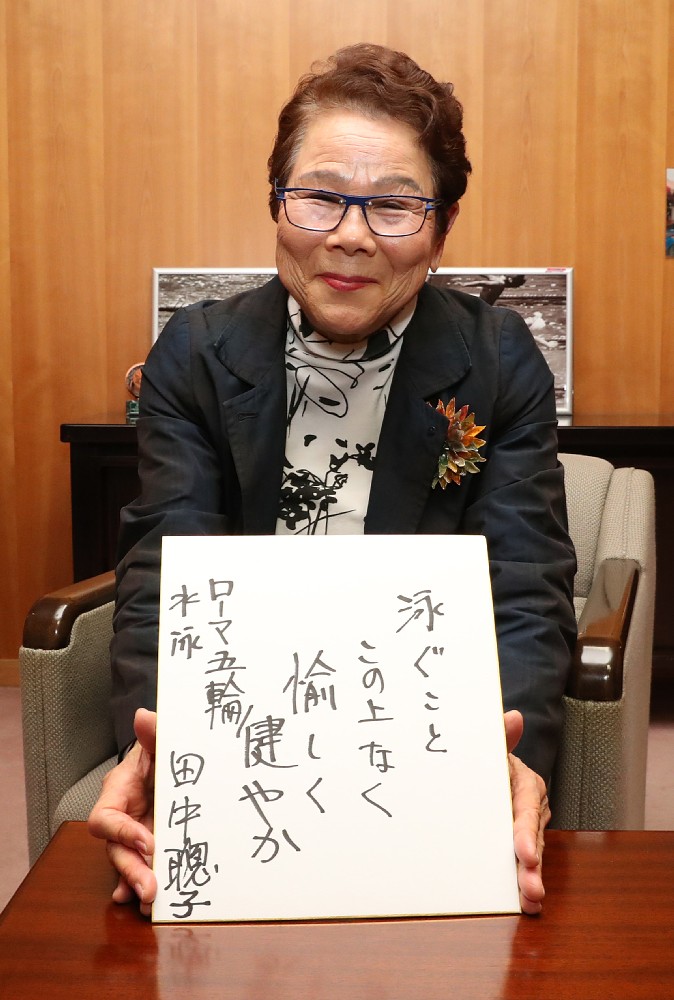 泳ぐこと
この上なく
愉しく
健やか
ローマ五輪
水泳
田中聰子